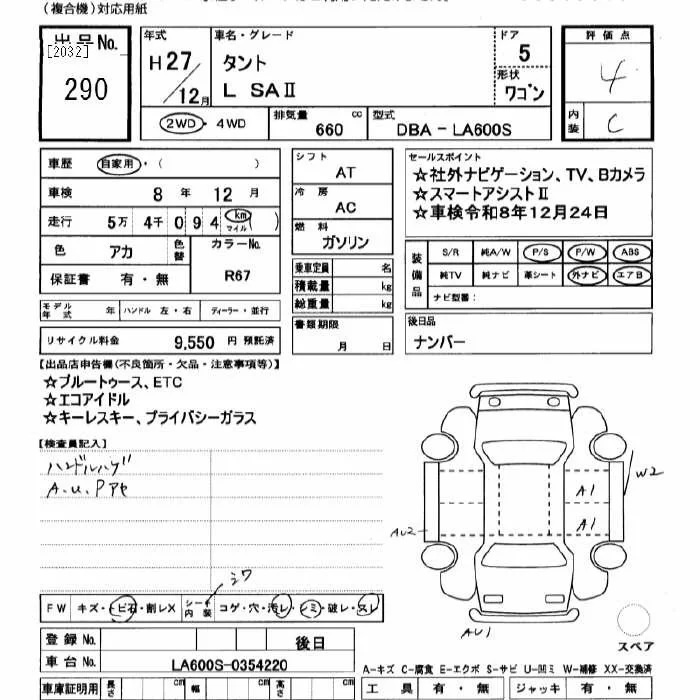 (複合機)対応用紙
出品No.
[2032]
290
年式
H27/12月
車名・グレード
タント
L SAⅡ
ドア
5
形状
ワゴン
評価点
4
内装
C
2WD・4WD
排気量
660 cc
型式
DBA - LA600S
車歴 自家用・( )
車検 8年 12月
走行 5万 4千 0 9 4 km マイル ( )
色 アカ
色替
カラーNo.
R67
保証書 有・無
シフト
AT
冷房
AC
燃料
ガソリン
乗車定員 名
積載量 kg
総重量 kg
セールスポイント
☆社外ナビゲーション、TV、Bカメラ
☆スマートアシストⅡ
☆車検令和8年12月24日
装備品
S/R 純A/W P/S P/W ABS
純TV 純ナビ 革シート 外ナビ エアB
ナビ型番:
モデル年式 年 ハンドル 左・右 ディーラー・並行
リサイクル料金 9,550 円 預託済
書類期限
月 日
後日品
ナンバー
【出品店申告欄(不良箇所・欠品・注意事項等)】
☆ブルートゥース、ETC
☆エコアイドル
☆キーレスキー、プライバシーガラス
【検査員記入】
ハンドルハゲ
A.U.Pアセ
W2
A1
A1
AU2
AU1
シワ
FW キズ・トビ石・割レX シート内装 コゲ・穴・汚レ・シミ・破レ・スレ
スペア
登録No. 後日
車台No. LA600S-0354220
A-キズ C-腐食 E-エクボ S-サビ U-凹ミ W-補修 XX-交換済
車庫証明用 長さ cm 幅 cm 高さ cm
工具 有・無 ジャッキ 有・無